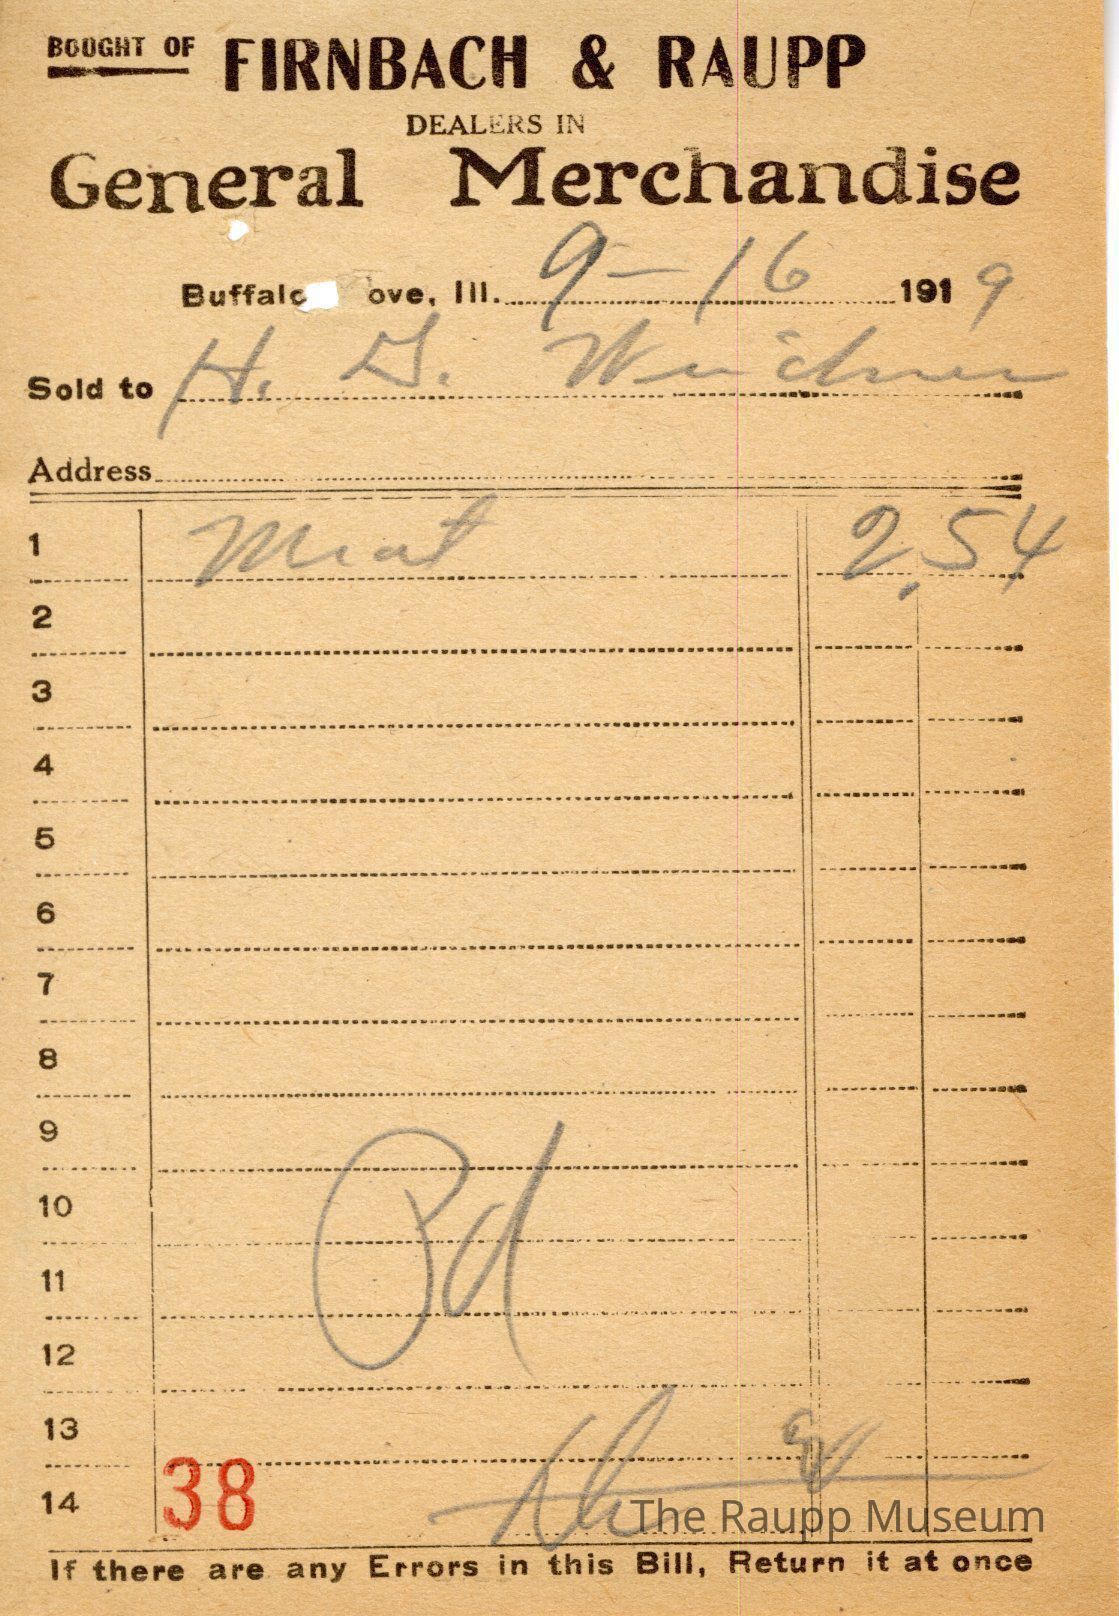 BOUGHT OF FIRNBACH & RAUPP
DEALERS IN
General Merchandise
Buffalo ove, Ill. 9-16 1919
Sold to H. G. Weidner
Address
1 Meat 2,54
2
3
4
5
6
7
8
9
10
11
12
Pd
13
14 38
The Raupp Museum
If there are any Errors in this Bill, Return it at once